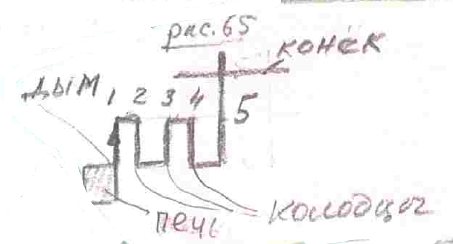 рис. 65
конёк
дым 1 2 3 4 5
печь
колодцы